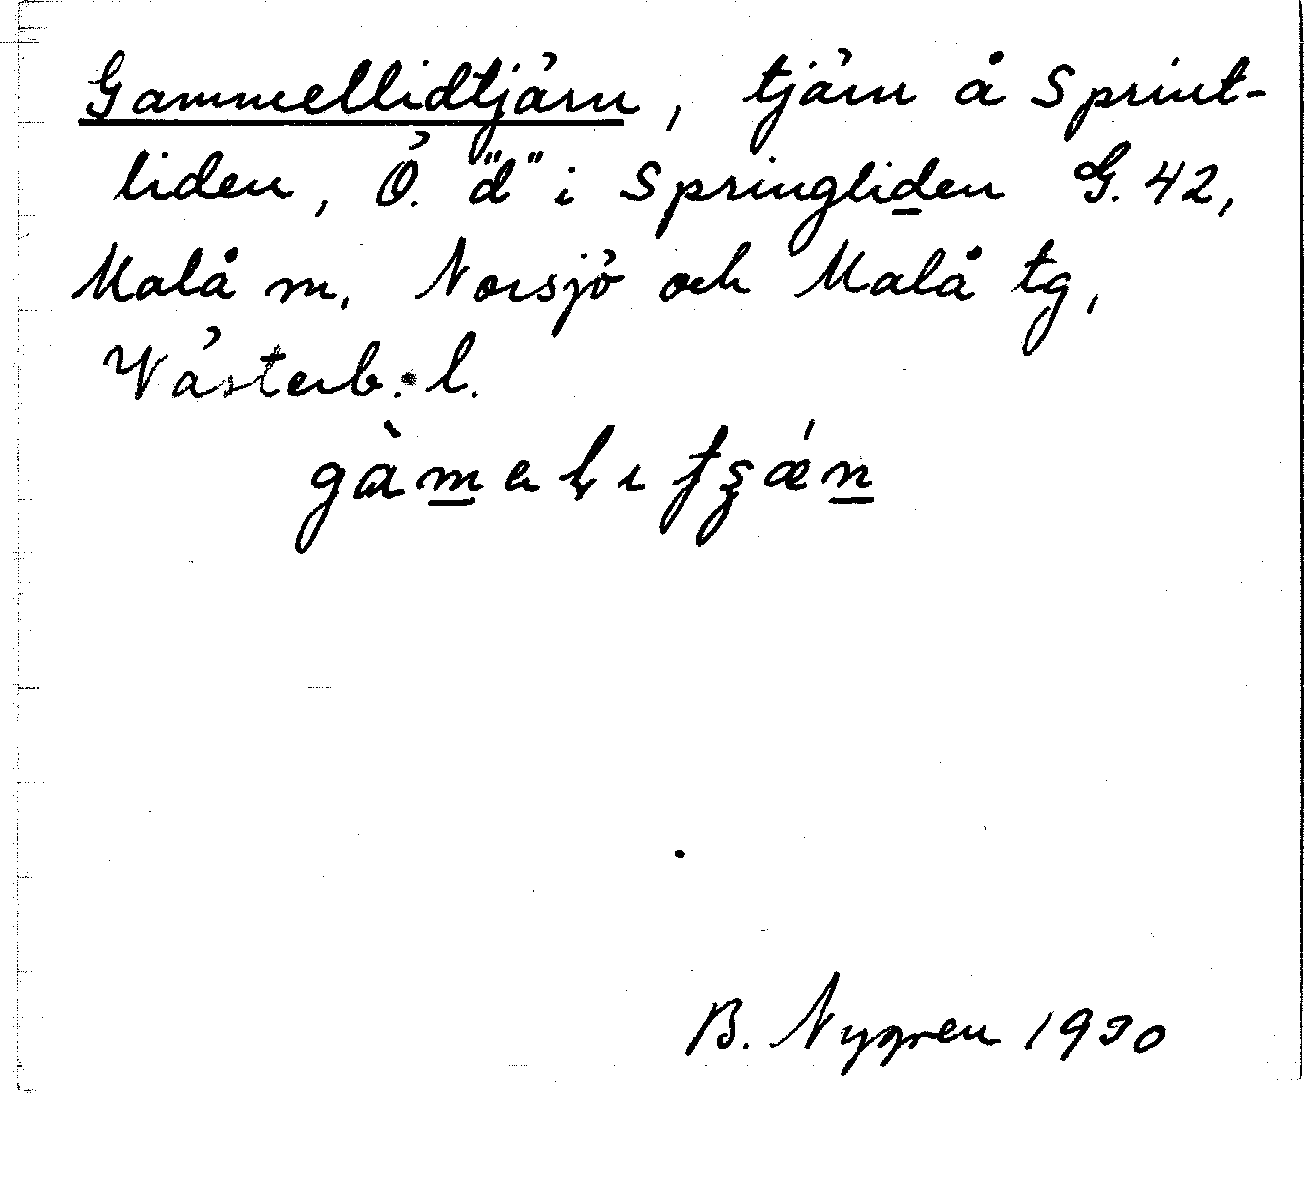 Gammellidtjärn, tjärn å Sprint-
liden, Ö. "d" i Springliden G. 42,
Malå sn, Norsjö och Malå tg,
Västerb:s l.
gàmeḷıtʂǽn
B. Nygren 1930